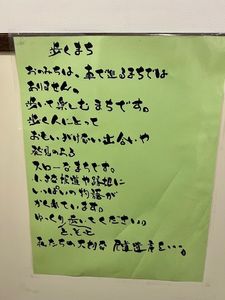 歩くまち
おのみちは、車で通るまちでは
ありません。
歩いて楽しむまちです。
歩く人にとって
おもいがけない出合いや
発見のある
スローなまちです。
小さな坂道や路地に
いっぱいの物語が
かくれています。
ゆっくり歩いてください。
そっと
私たちの大切な 尾道を…。